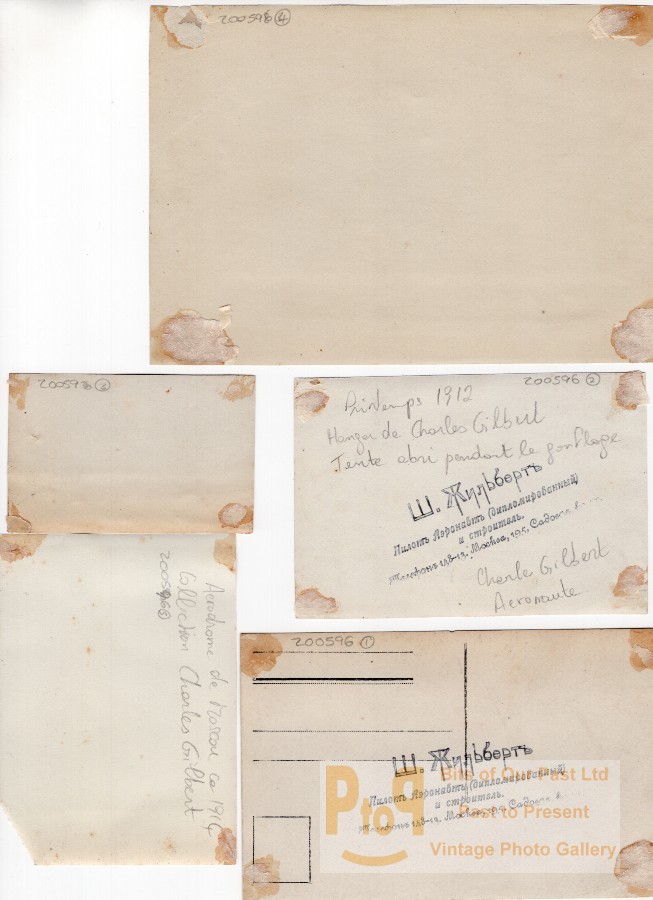 200596 4
200596 3
200596 2
Printemps 1912
Hangar de Charles Gilbert
Tente abri pendant le gonflage
Ш. Жильбертъ
Пилотъ Аэронавтъ (дипломированный)
и строитель.
Телефонъ 148-14. Москва, Садовая
Charle Gilbert
Aeronaute
Aerodrome de Moscou ca 1914
Collection Charles Gilbert
200596
200596 1
Ш. Жильбертъ
Пилотъ Аэронавтъ (дипломированный)
и строитель.
Телефонъ Москва, Садовая
PtoP
Bits of Our Past Ltd
Past to Present
Vintage Photo Gallery